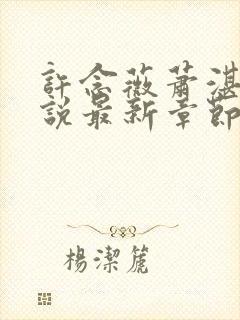 許念薇蕭湛
說最新章節
楊潔篪